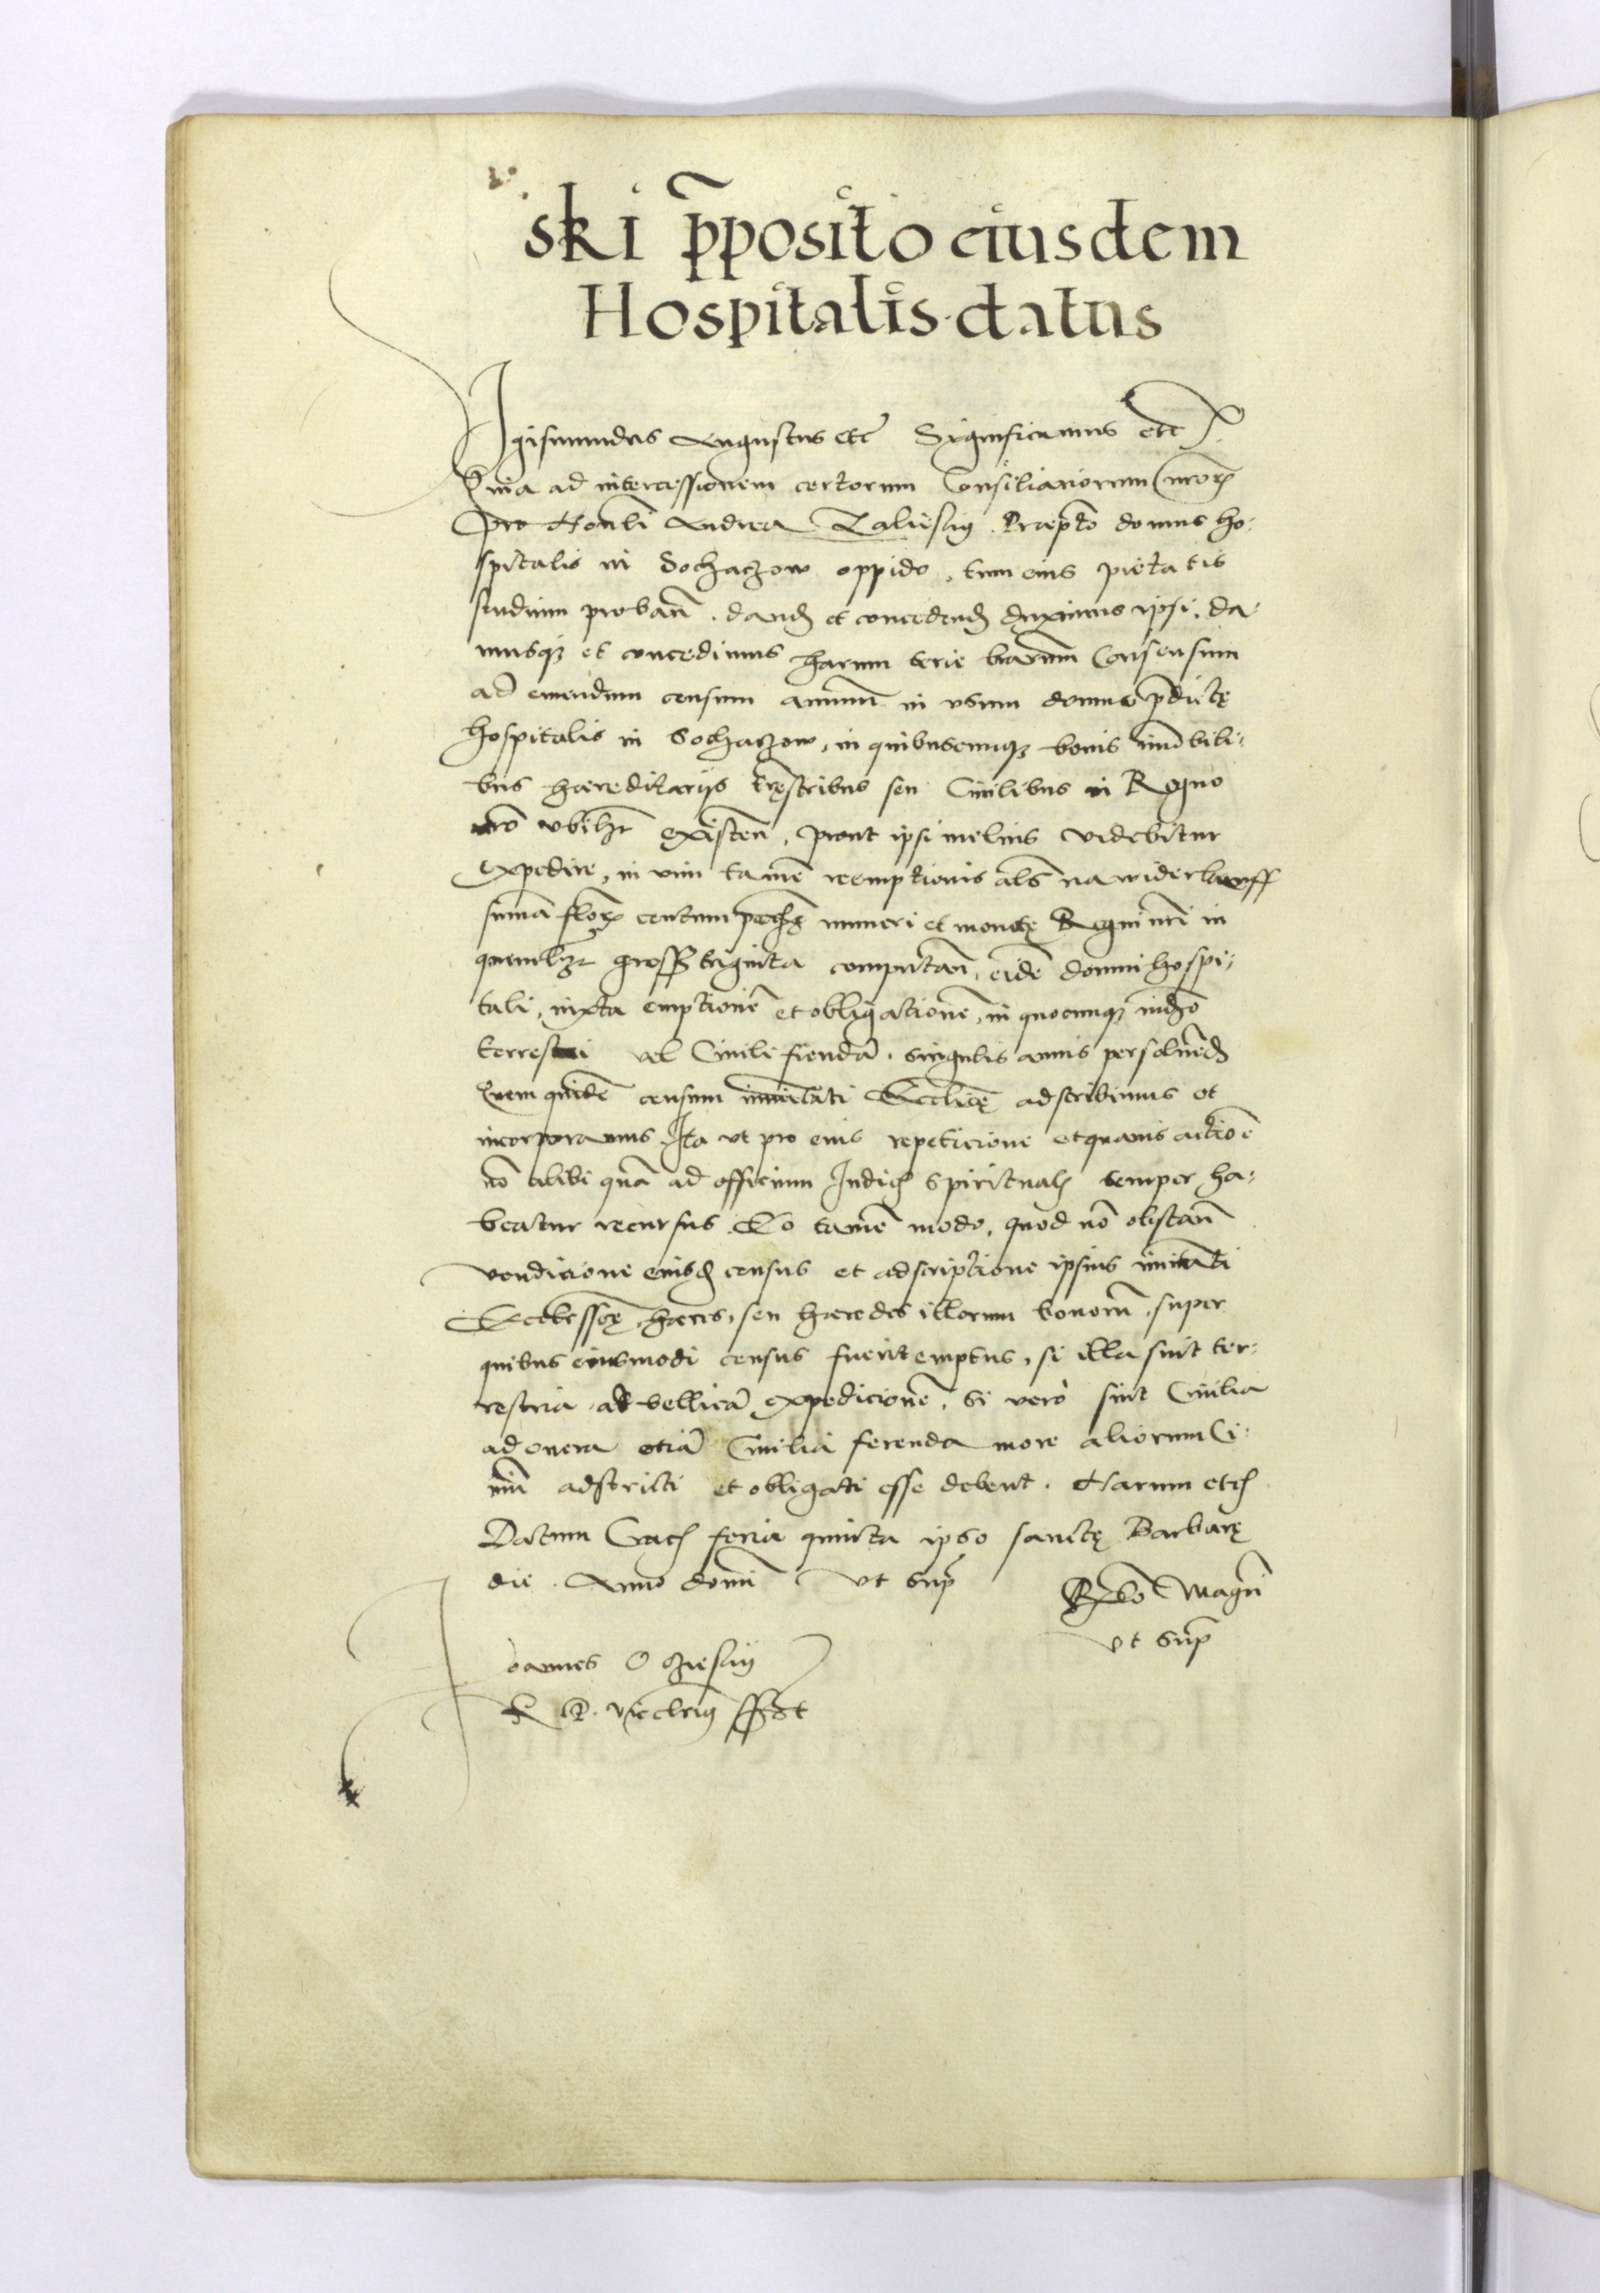 ski p̃posito eiusdem
Hospitalis datus
Sigismundus Augustus etc̃ Significamus etc̃
Quia ad intercessionem certorum Consiliariorum nr̄oꝝ
pro Honbli Andrea Zaliesky Præpto domus ho:
spitalis in Sochaczow oppido, tum eius pietatis
studium proban̄. dand et conceden̄d duximus ipsi. da:
musqꝫ et concedimus harum serie l̄rarum Consensum
ad emendum censum annuum in vsum domus p̄dictę
hospitalis in Sochaczow, in quibuscunqꝫ bonis im̄obili:
bus hæreditarijs tręstribus seu Ciuilibus in Regno
nr̄o vbilꝫt existen̄. prout ipsi melius videbitur
expedire, in vim tamē reemptionis al̄s na widerkauff
sum̄ā floꝝ centum numeri et monetę Regni nr̄i in
quemlꝫt gross triginta computan̄. eidē domui hospi:
tali, iuxta emptionē et obligationem, in quocunqꝫ iud̄o
terrestri vel Ciuili fiendā. singulis annis persoluēd
Quem quidē censum im̄unitati Ecclię adscribimus et
incorporamus. Ita vt pro eius repeticione et quauis actiōe
nō alibi quā ad officium Iudicꝭ spiritualꝭ semper ha:
beatur recursus. Eo tamē modo, quod nō obstan̄
vendicione eiusd census et adscriptione ipsius im̄unitati
hæres, seu hæredes illorum bonorū, super
quibus eiusmodi census fuerit emptus, si illa sint ter:
restria, ad bellicā expedicionē. Si vero sint Ciuilia
ad onera etiā Ciuilia ferenda more aliorum Ci:
uiū adstricti et obligati esse debent. Harum etcꝭ
Datum Cracꝭ feria quinta ipso sanctę Barbarę
die. Anno domī vt sup̄
Rꝯo Magcī
vt sup̄
Ioannes Oczesky
R P. Vicecanrius sszt